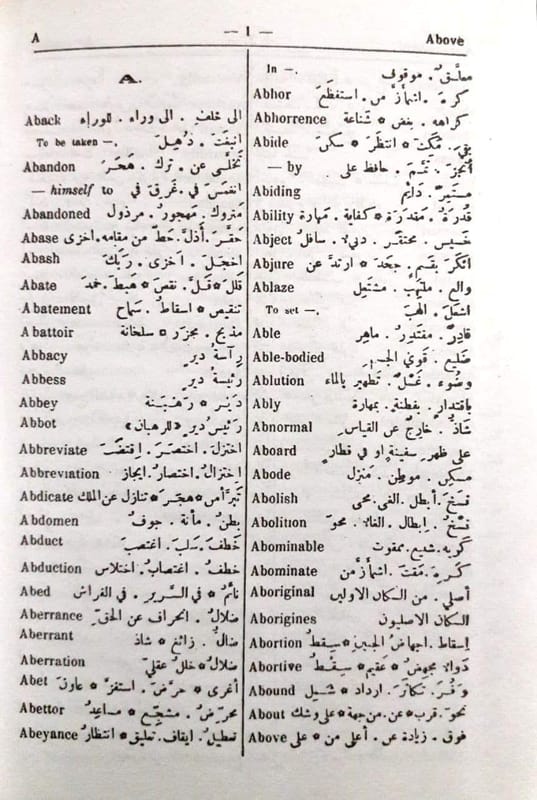 A — 1 — Above
A.
Aback الى خلف. الى وراء. للوراء
To be taken —. انبغت. ذهل
Abandon تخلى عن. ترك. هجر
— himself to انغمس في. غرق في
Abandoned متروك. مهجور. مرذول
Abase حقر. أذل. حط من مقامه. اخزى
Abash اخجل. اخزى. ربك
Abate قلل * قل. نقص * هبط. خمد
Abatement تنقيص * اسقاط. سماح
Abattoir مذبح. مجزر * سلخانة
Abbacy رآسة دير
Abbess رئيسة دير
Abbey دير. رهبنة
Abbot رئيس دير «للرهبان»
Abbreviate اختزل. اختصر. اقتضب
Abbreviation اختزال. اختصار. ايجاز
Abdicate تبرأ من * هجر * تنازل عن الملك
Abdomen بطن. مأنة. جوف
Abduct خطف. سلب. اغتصب
Abduction خطف. اغتصاب. اختلاس
Abed نائم * في السرير. في الفراش
Aberrance ضلال. انحراف عن الحق
Aberrant ضال. زائغ * شاذ
Aberration ضلال * خلل عقلي
Abet أغرى * حرض. استفز * عاون
Abettor محرض. مشجع * مساعد
Abeyance تعطيل. ايقاف. تعليق * انتظار
In —. معلق. موقوف
Abhor كره. اشمأز من. استفظع
Abhorrence كراهه. بغض * شناعة
Abide بقي. مكث * انتظر * سكن
— by أنجز. تمم. حافظ على
Abiding مستمر. دايم
Ability قدرة. مقدرة * كفاية. مهارة
Abject خسيس. محتقر. دنيء. سافل
Abjure انكر بقسم. جحد * ارتد عن
Ablaze والع. ملتهب. مشتعل
To set —. اشعل. الهب
Able قادر. مقتدر. ماهر
Able-bodied ضليع. قوي الجسم
Ablution وضوء. غسل. تطهير بالماء
Ably باقتدار. بفطنة. بمهارة
Abnormal شاذ. خارج عن القياس
Aboard على ظهر سفينة او في قطار
Abode مسكن. موطن. منزل
Abolish فسخ. أبطل. الغى. محى
Abolition فسخ. ابطال. الغاء. محو
Abominable كريه. شنيع. ممقوت
Abominate كره. مقت. اشمأز من
Aboriginal أصلي. من السكان الاوليين
Aborigines السكان الاصليون
Abortion اسقاط. اجهاض الجنين * سقط
Abortive دوالا مجهض * عقيم * سقط
Abound وفر. تكاثر. ازداد *
About نحو. قرب * عن. من جهة * على وشك
Above فوق. زيادة عن. أعلى من * على